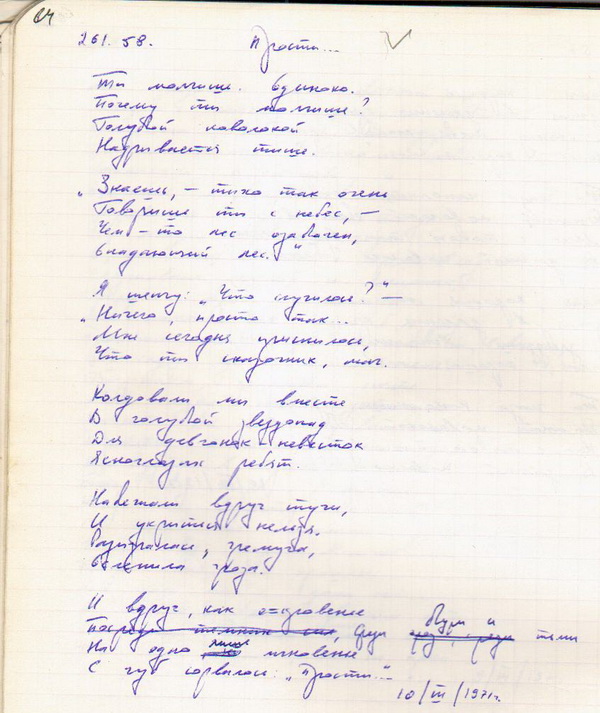 64
261. 58. Прости...
Ты молчишь. Одиноко.
Почему ты молчишь?
Голубой поволокой
Надрывается тишь.
„Знаешь, – тихо так очень
Говоришь ты с небес, –
Чем-то лес озабочен,
Владающий лес."
Я шепчу: „Что случилось?" –
„Ничего, просто так...
Мне сегодня приснилось,
Что ты сказочник, маг.
Колдовали мы вместе
В голубой звездопад
Для девчонок невесток
Ясноглазых ребят.
Набежали вдруг тучи,
И укрыться нельзя.
Разыгралась, гремуча,
Ослепила гроза.
И вдруг, как откровенье
бури и
Посреди, среди тьмы
лишь
На одно мгновенье
С губ сорвалось: „Прости..."
10/III/1971г.